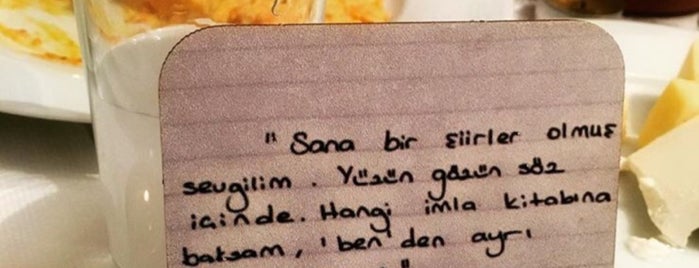 " Sana bir şiirler olmuş
sevgilim. Yüzün gözün söz
içinde. Hangi imla kitabına
baksam, 'ben'den ayrı
"